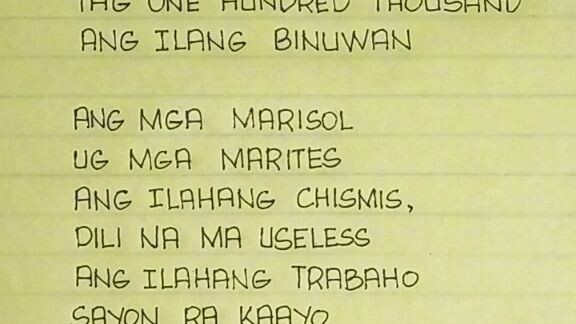 TAG ONE HUNDRED THOUSAND
ANG ILANG BINUWAN
ANG MGA MARISOL
UG MGA MARITES
ANG ILAHANG CHISMIS,
DILI NA MA USELESS
ANG ILAHANG TRABAHO
SAYON RA KAAYO